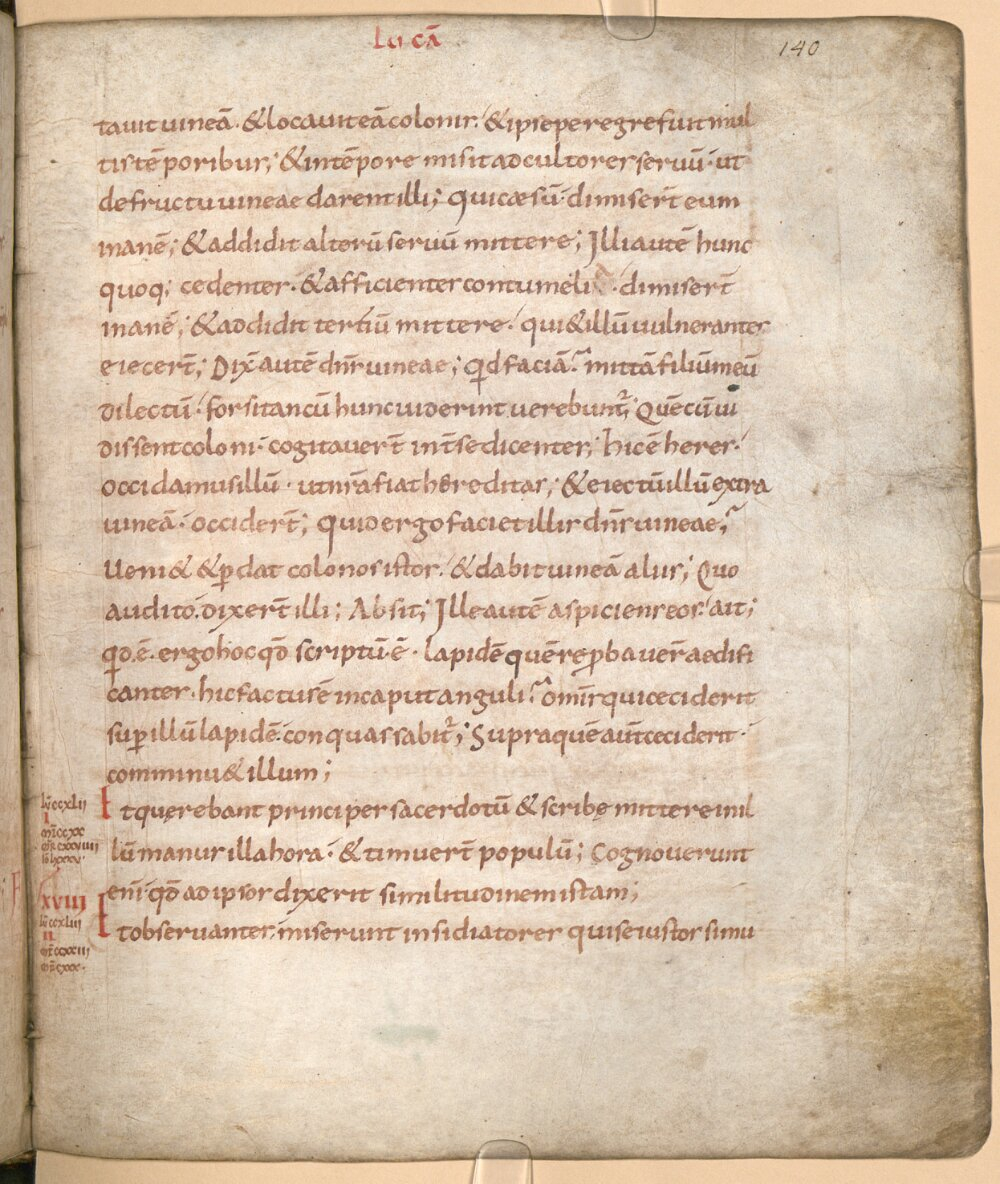 Lucā
140
tauit uineā· & locauit eā colonis· & ipse peregre fuit mul
tis tēporibus; & in tēpore misit ad cultores seruū· ut
de fructu uineae darent illi; Qui cæsū· dimisert̄ eum
inanē; & addidit alterū seruū mittere; Illi autē hunc
quoq; cedentes· & afficientes contumeli · dimisert̄
inanē; & addidit tertiū mittere· qui & illū uulnerantes
eiecert̄; Dix̄ autē dn̄s uineae; Qid faciā? mittā filiū meū
dilectū· forsitan cū hunc uiderint uerebunt̄; Quē cū ui
dissent coloni· cogitauert̄ int̄ se dicentes; hic ē heres·
occidamus illū· ut nr̄a fiat hereditas; & eiectū illū extra
uineā· occidert̄; quid ergo faciet illis dn̄s uineae?
Ueni& & ꝑdat colonos istos· & dabit uineā aliis; Quo
audito· dixert̄ illi; Absit; Ille autē aspiciens eos· ait;
qd̄ ē· ergo hoc qd̄ scriptū ē· lapidē quē reꝓbauer̄ aedifi
cantes· hic factus ē in caput anguli? omīs qui ceciderit
suꝑ illū lapidē· conquassabit̄; Supra quē aut̄ ceciderit·
comminu& illum;
Et querebant principes sacerdotū & scribę mittere in il
lū manus illa hora· & timuert̄ populū; Cognouerunt
enī qd̄ ad ipsos dixerit similitudinem istam;
Et obseruantes· miserunt insidiatores qui se iustos simu
lū ccxlii
I
mt̄ ccxx
XVIII
lū ccxliii
II
mt̄ ccxxiii
mr̄ cxxx·